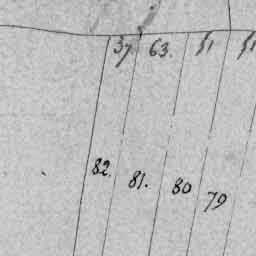 37 63. 51 51
82. 81. 80 79